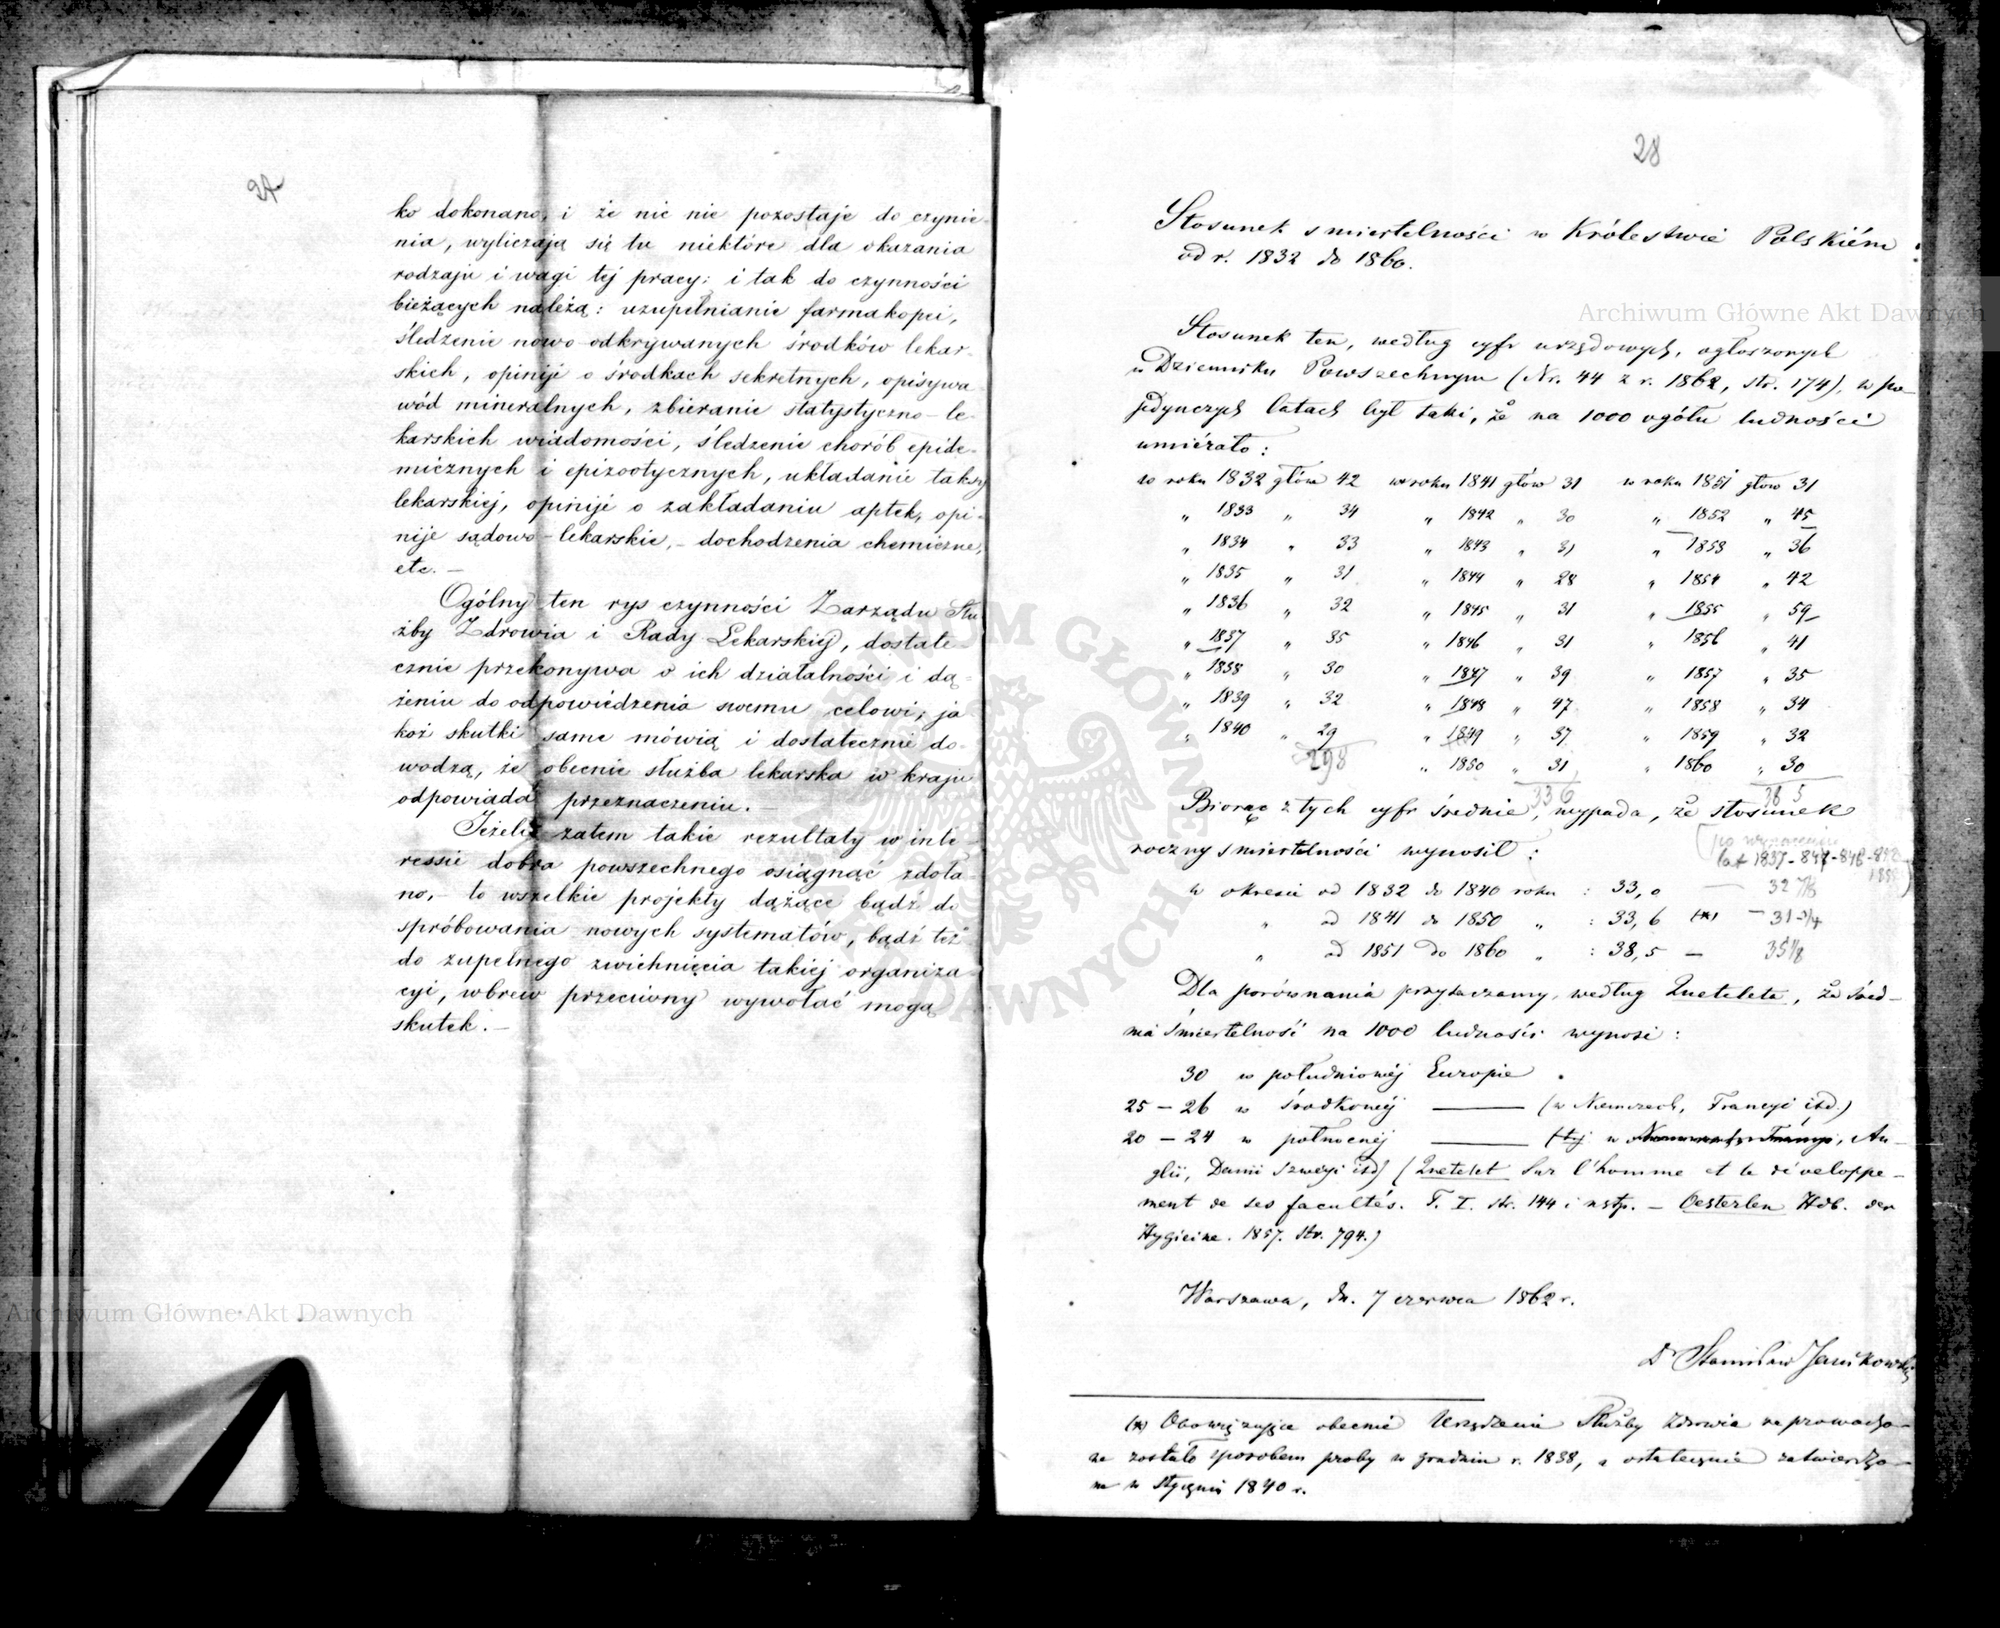 27
ko dokonano, i że nic nie pozostaje do czynie-
nia, wyliczają się tu niektóre dla okazania
rodzaju i wagi tej pracy; i tak do czynności
bieżących należą: uzupełnianie farmakopei,
śledzenie nowo-odkrywanych środków lekar-
skich, opinije o środkach sekretnych, opisywa-
wód mineralnych, zbieranie statystyczno-le-
karskich wiadomości, śledzenie chorób epide-
micznych i epizootycznych, układanie taksy
lekarskiej, opinije o zakładaniu aptek, opi-
nije sądowo-lekarskie, - dochodzenia chemiczne,
etc. -
Ogólny ten rys czynności Zarządu Słu
żby Zdrowia i Rady Lekarskiej, dostate-
cznie przekonywa o ich działalności i dą-
żeniu do odpowiedzenia swemu celowi; ja
koż skutki same mówią i dostatecznie do-
wodzą, że obecnie służba lekarska w kraju
odpowiada przeznaczeniu. -
Jeżeli zatem takie rezultaty w inte-
ressie dobra powszechnego osiągnąć zdoła-
no, - to wszelkie projekty dążące bądź do
spróbowania nowych systematów, bądź też
do zupełnego zwichnięcia takiej organiza-
cyi, wbrew przeciwny wywołać mogą
skutek. -
28
Stosunek smiertelności w Królestwie Polskiém
od r. 1832 do 1860.
Stosunek ten, według cyfr urzędowych, ogłoszonych
w Dzienniku Powszechnym (Nr. 44 z r. 1862, str. 174), w po-
jedynczych latach był taki, że na 1000 ogółu ludności
umiérało:
w roku 1832 głów 42 w roku 1841 głów 31 w roku 1851 głów 31
" 1833 " 34 " 1842 " 30 " 1852 " 45
" 1834 " 33 " 1843 " 31 " 1853 " 36
" 1835 " 31 " 1844 " 28 " 1854 " 42
" 1836 " 32 " 1845 " 31 " 1855 " 59
" 1837 " 35 " 1846 " 31 " 1856 " 41
" 1838 " 30 " 1847 " 39 " 1857 " 35
" 1839 " 32 " 1848 " 47 " 1858 " 34
" 1840 " 29 " 1849 " 37 " 1859 " 32
298 " 1850 " 31 " 1860 " 30
336 385
Biorąc z tych cyfr średnie, wypada, że stosunek
roczny smiertelności wynosił:
lat 1837-847-848-
w okresie od 1832 do 1840 roku : 33,0 — 32 7/8
" od 1841 do 1850 " : 33,6 (*) — 31 3/4
" od 1851 do 1860 " : 38,5 — 35 1/8
Dla porównania przytaczamy, według Queteleta, że śred-
nia śmiertelność na 1000 ludności wynosi:
30 w południowéj Europie.
25 - 26 w środkowéj ——— (w Niemczech, Francyi itd.)
20 - 24 w północnéj ——— (tj w An-
glii, Danii Szwecyi itd) (Quetelet Sur l'homme et le développe-
ment de ses facultés. T. I. str. 144 i nstp. - Oesterlen Hdb. der
Hygieine. 1857. Str. 794.)
Warszawa, dn. 7 czerwca 1862 r.
Dr Stanisław Janikowski
(*) Obowiązujące obecnie Urządzenie Służby Zdrowia zaprowadzo-
ne zostało sposobem próby w grudniu r. 1838, a ostatecznie zatwierdzo-
ne w styczniu 1840 r.
Archiwum Główne Akt Dawnych
Archiwum Główne Akt Dawnych
ARCHIWUM GŁÓWNE AKT DAWNYCH